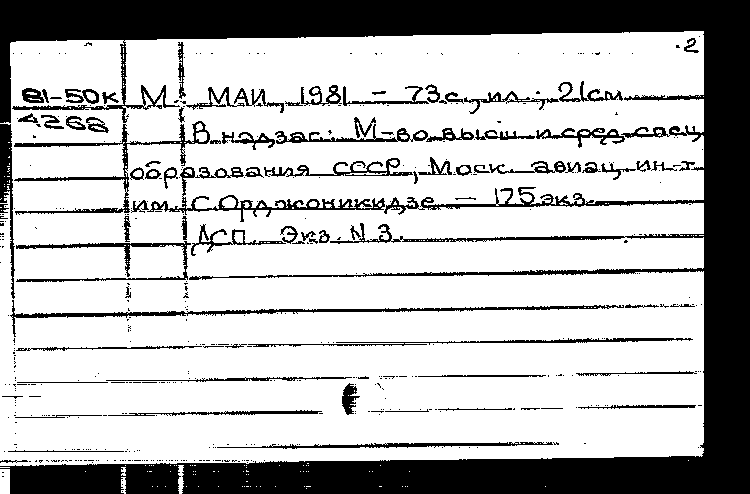 .2
81-50К М.: МАИ, 1981 - 73с., ил.; 21см.
4268 В надзаг: М-во высш и сред. спец
образования СССР, Моск. авиац. ин-т
им. С. Орджоникидзе - 175 экз.
ДСП. Экз. N 3.